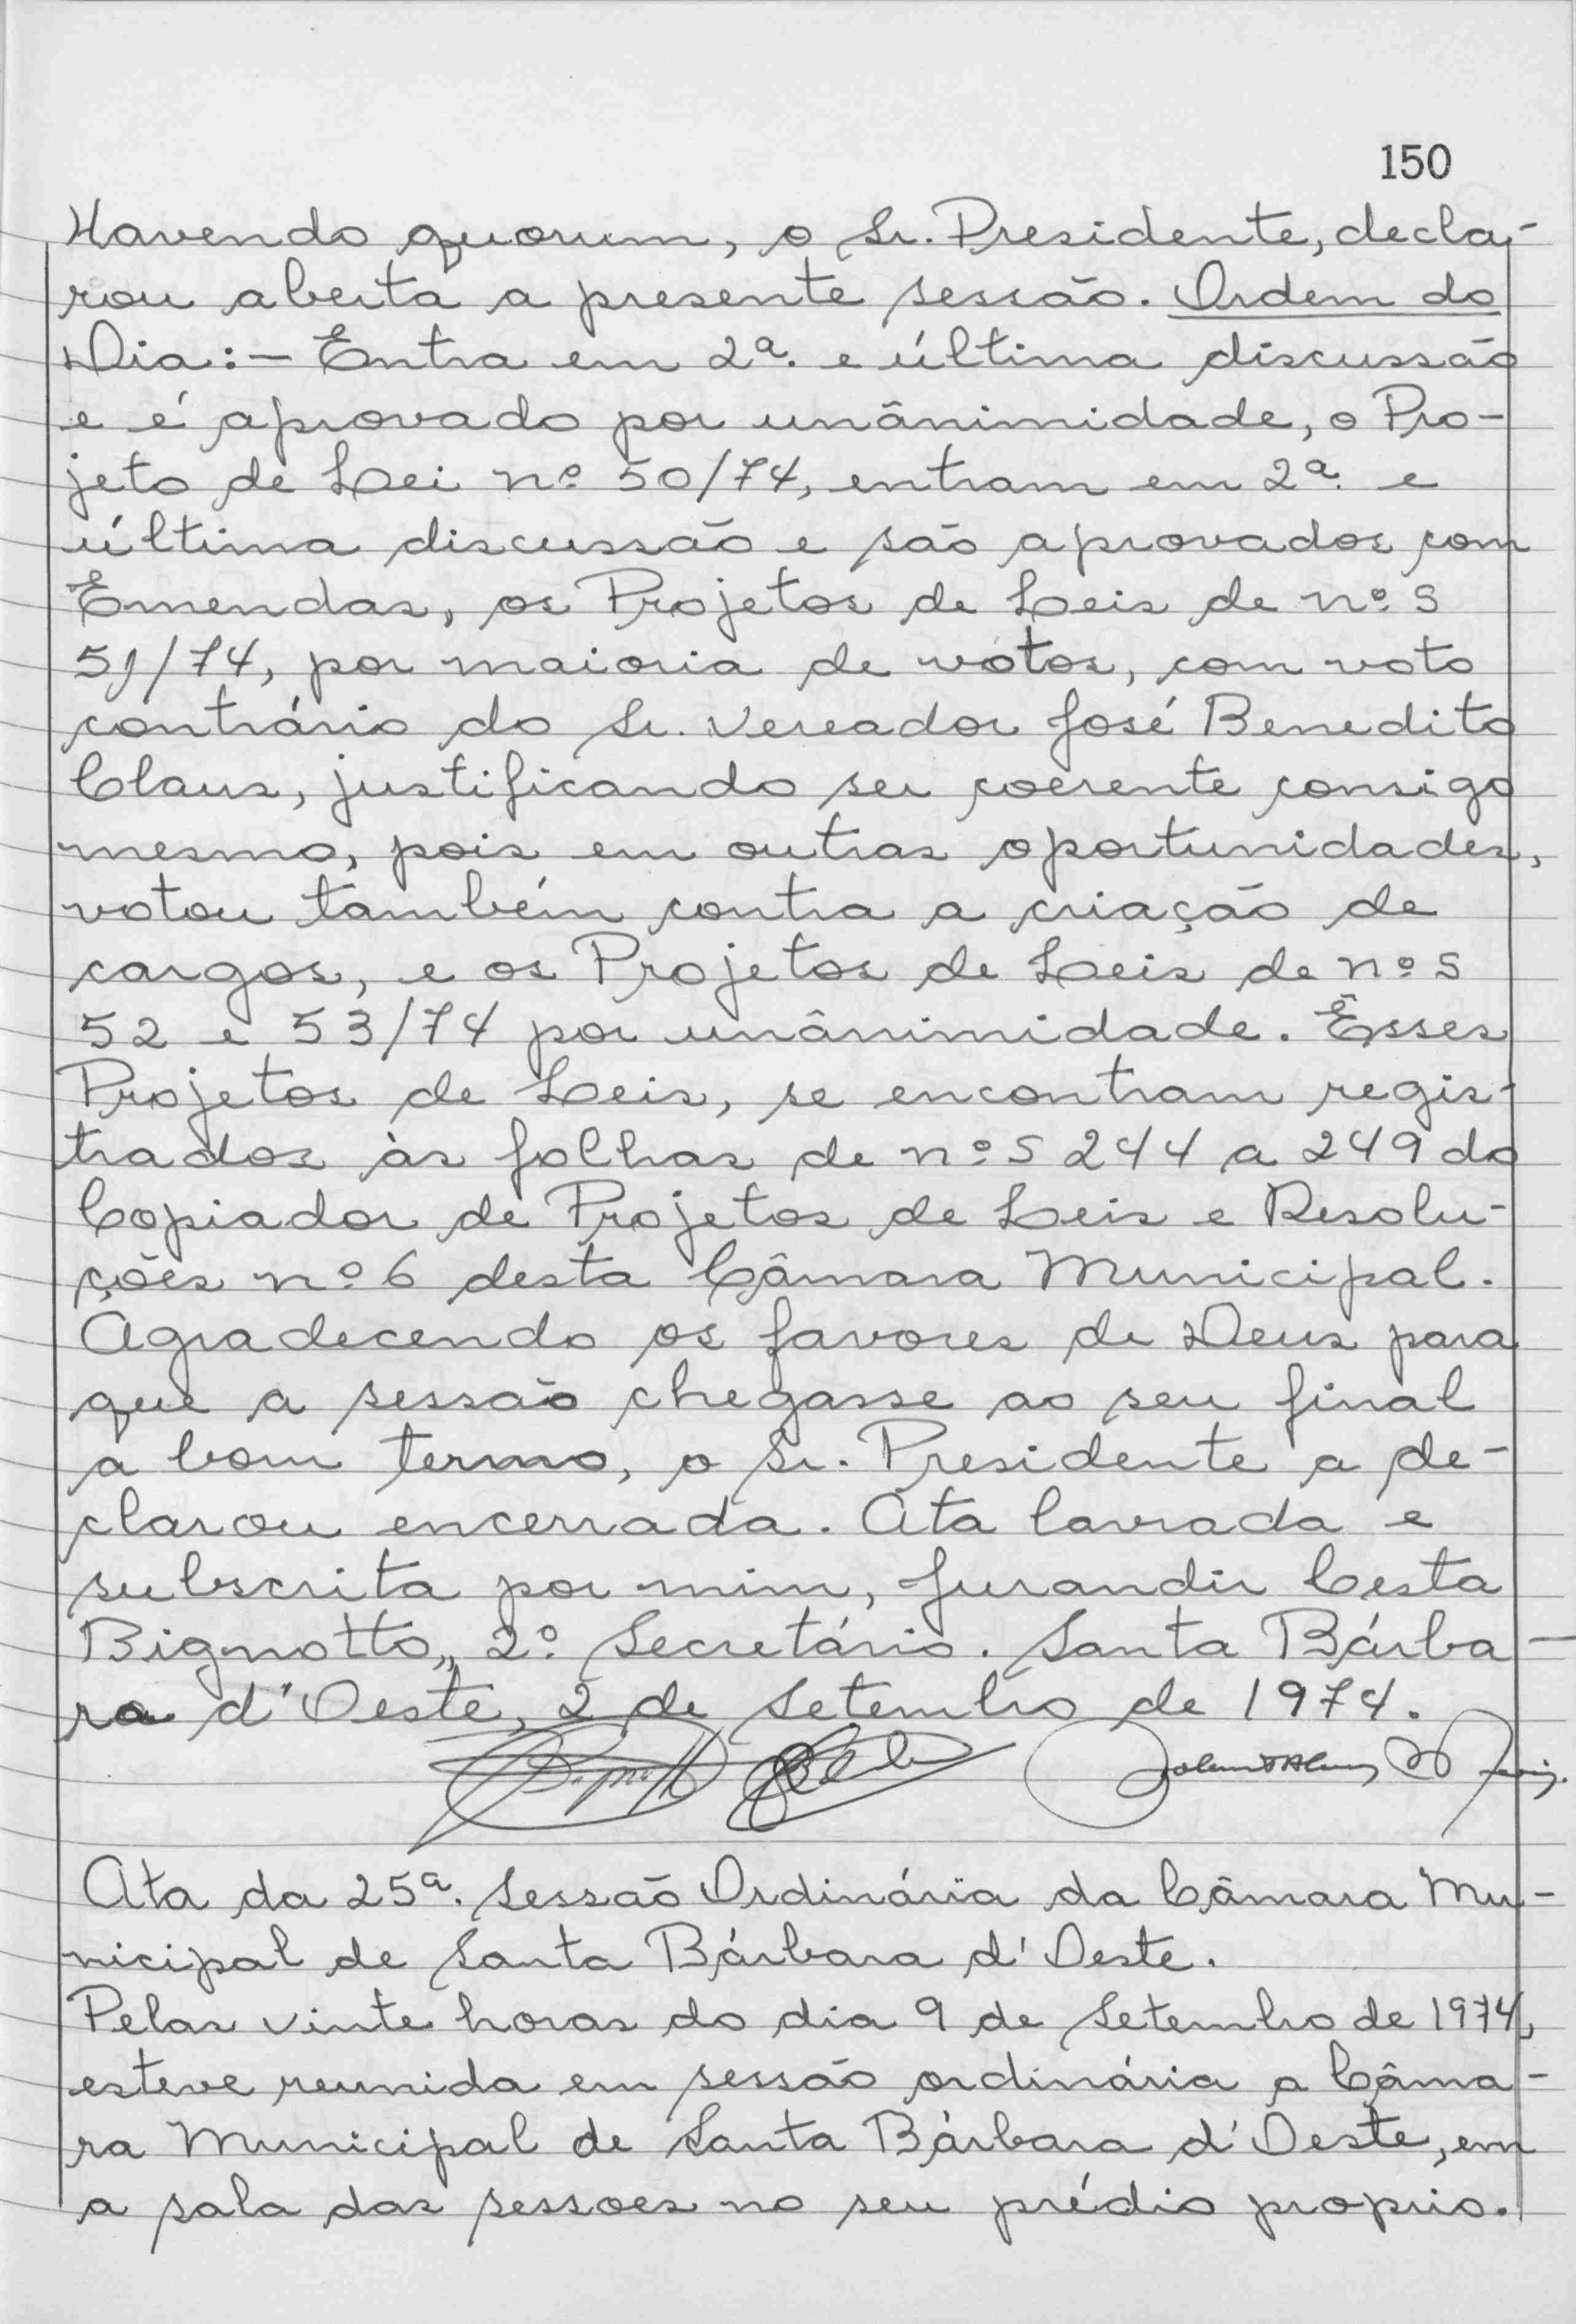 150
Havendo quorum, o Sr. Presidente, decla-
rou aberta a presente sessão. Ordem do
Dia:- Entra em 2ª. e última discussão
e é aprovado por unânimidade, o Pro-
jeto de Lei nº 50/74, entram em 2ª. e
última discussão e são aprovados com
Emendas, os Projetos de Leis de nºs
51/74, por maioria de votos, com voto
contrário do Sr. Vereador José Benedito
Claus, justificando ser coerente consigo
mesmo, pois em outras oportunidades,
votou também contra a criação de
cargos, e os Projetos de Leis de nºs
52 e 53/74 por unânimidade. Êsses
Projetos de Leis, se encontram regis-
trados às folhas de nºs 244 a 249 do
Copiador de Projetos de Leis e Resolu-
ções nº 6 desta Câmara Municipal.
Agradecendo os favores de Deus para
que a sessão chegasse ao seu final
a bom termo, o Sr. Presidente a de-
clarou encerrada. Ata lavrada e
subscrita por mim, Jurandir Certa
Bignotto,, 2º. Secretário. Santa Bárba-
ra d'Oeste, 2 de Setembro de 1974.
Ata da 25ª. Sessão Ordinária da Câmara Mu-
nicipal de Santa Bárbara d'Oeste.
Pelas vinte horas do dia 9 de Setembro de 1974,
esteve reunida em sessão ordinária a Câma-
ra Municipal de Santa Bárbara d'Oeste, em
a sala das sessoes no seu prédio proprio.